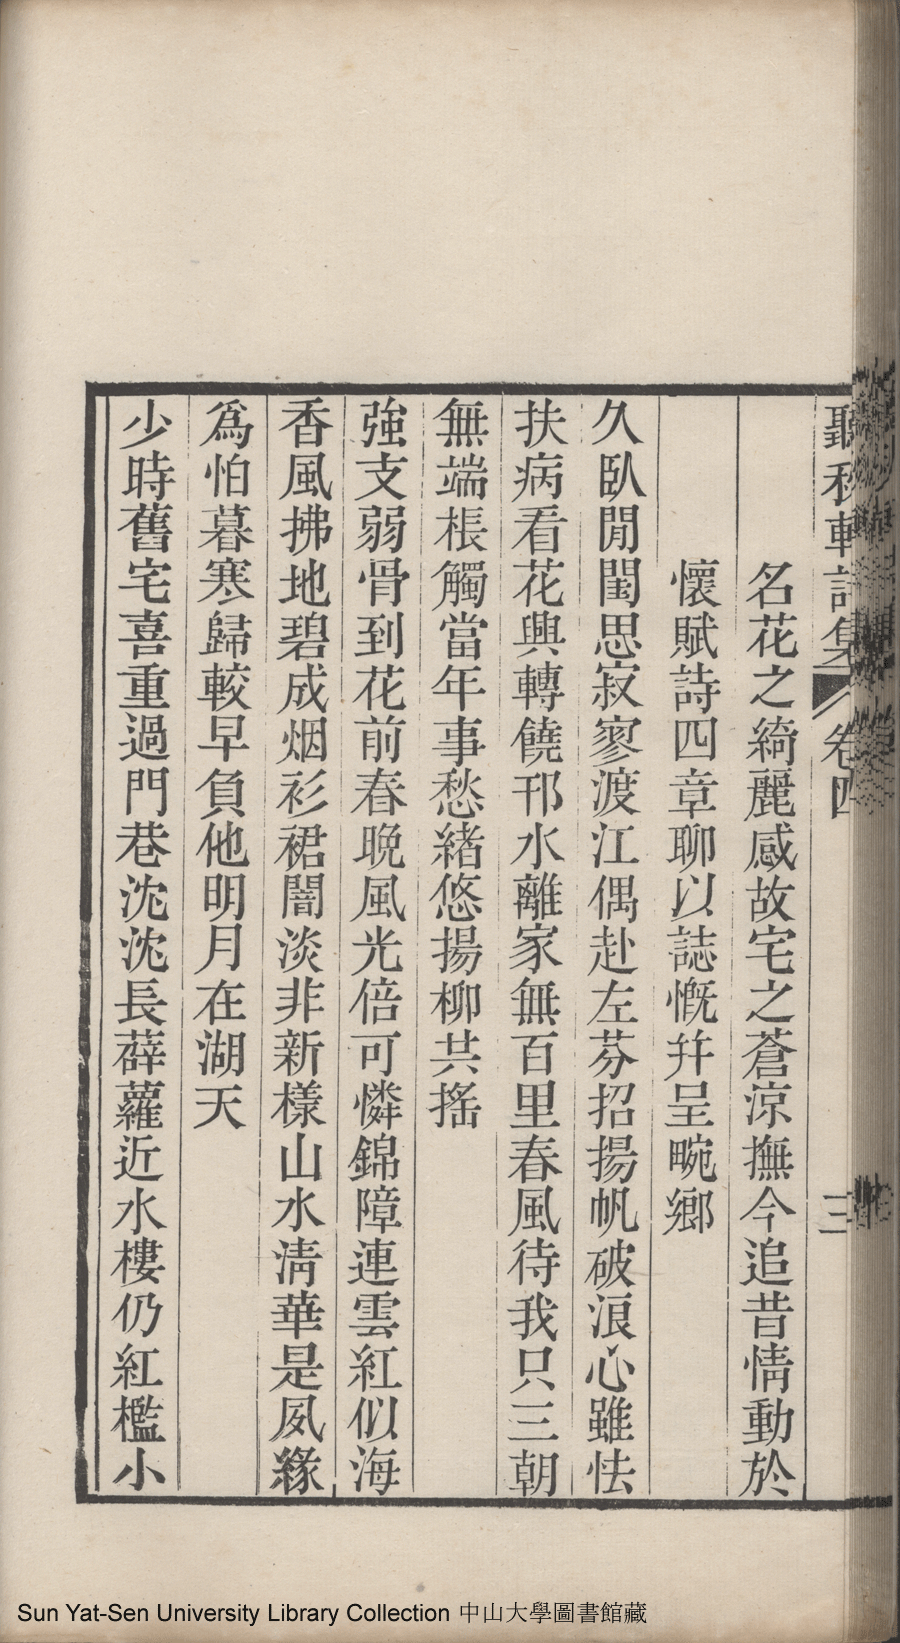 聽秋軒詩集 卷四 三
名花之綺麗感故宅之蒼涼撫今追昔情動於
懷賦詩四章聊以誌慨幷呈畹鄉
久臥閒閨思寂寥渡江偶赴左芬招揚帆破浪心雖怯
扶病看花興轉饒邗水離家無百里春風待我只三朝
無端棖觸當年事愁緒悠揚柳共搖
強支弱骨到花前春晚風光倍可憐錦障連雲紅似海
香風拂地碧成烟衫裙闇淡非新樣山水淸華是夙緣
爲怕暮寒歸較早負他明月在湖天
少時舊宅喜重過門巷沈沈長薜蘿近水樓仍紅檻小
Sun Yat-Sen University Library Collection 中山大學圖書館藏